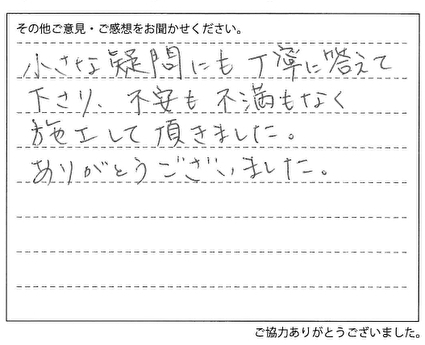 その他ご意見・ご感想をお聞かせください。
小さな疑問にも丁寧に答えて
下さり、不安も不満もなく
施工して頂きました。
ありがとうございました。
ご協力ありがとうございました。